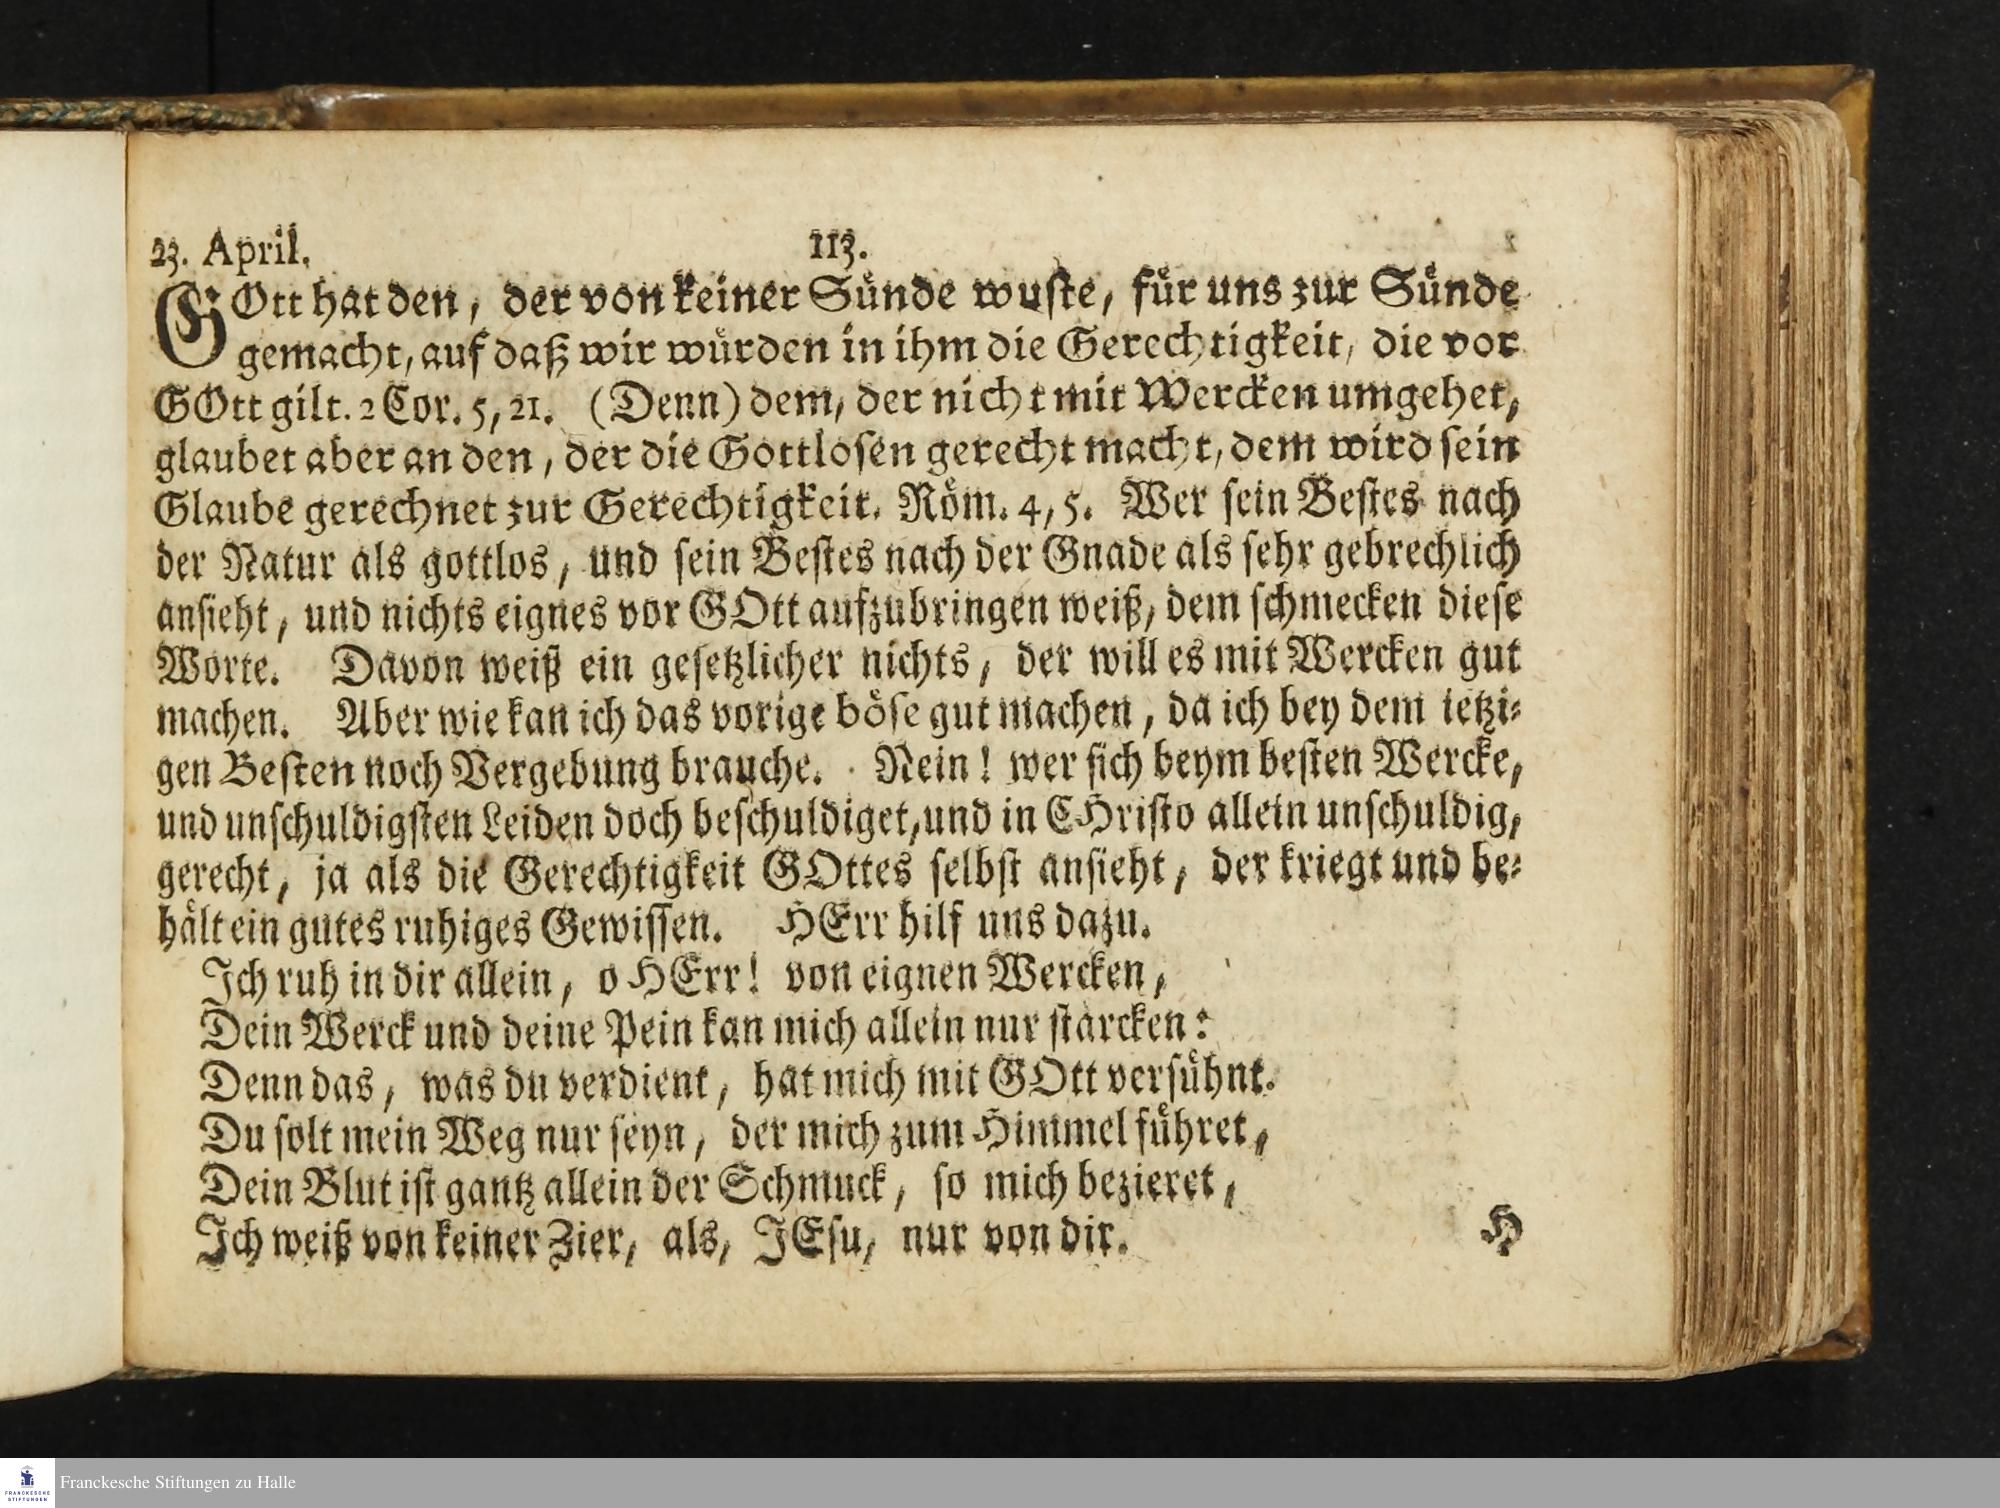 23. April. 113.
GOtt hat den, der von keiner Sünde wuste, für uns zur Sünde
gemacht, auf daß wir würden in ihm die Gerechtigkeit, die vor
GOtt gilt. 2 Cor. 5, 21. (Denn) dem, der nicht mit Wercken umgehet,
glaubet aber an den, der die Gottlosen gerecht macht, dem wird sein
Glaube gerechnet zur Gerechtigkeit. Röm. 4, 5. Wer sein Bestes nach
der Natur als gottlos, und sein Bestes nach der Gnade als sehr gebrechlich
ansieht, und nichts eignes vor GOtt aufzubringen weiß, dem schmecken diese
Worte. Davon weiß ein gesetzlicher nichts, der will es mit Wercken gut
machen. Aber wie kan ich das vorige böse gut machen, da ich bey dem ietzi-
gen Besten noch Vergebung brauche. Nein! wer sich beym besten Wercke,
und unschuldigsten Leiden doch beschuldiget, und in CHristo allein unschuldig,
gerecht, ja als die Gerechtigkeit GOttes selbst ansieht, der kriegt und be-
hält ein gutes ruhiges Gewissen. HErr hilf uns dazu.
Ich ruh in dir allein, o HErr! von eignen Wercken,
Dein Werck und deine Pein kan mich allein nur stärcken:
Denn das, was du verdient, hat mich mit GOtt versühnt.
Du solt mein Weg nur seyn, der mich zum Himmel führet,
Dein Blut ist gantz allein der Schmuck, so mich bezieret,
Ich weiß von keiner Zier, als, JEsu, nur von dir.
H
FRANCKESCHE
STIFTUNGEN
Franckesche Stiftungen zu Halle